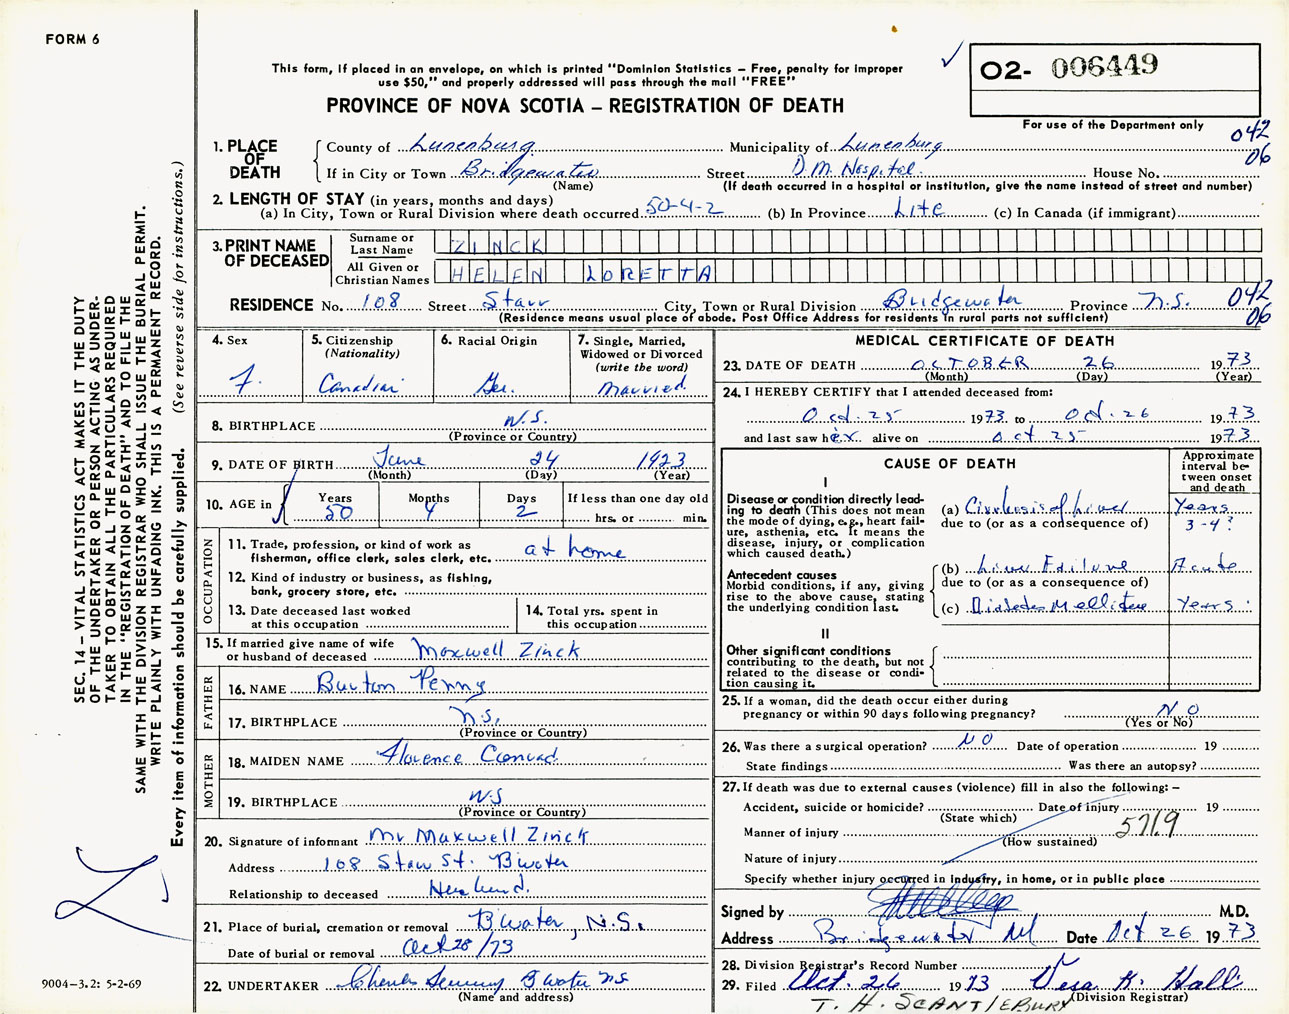 FORM 6
This form, if placed in an envelope, on which is printed "Dominion Statistics – Free, penalty for improper
use $50," and properly addressed will pass through the mail "FREE"
PROVINCE OF NOVA SCOTIA – REGISTRATION OF DEATH
02- 006449
For use of the Department only
042
06
SEC. 14 – VITAL STATISTICS ACT MAKES IT THE DUTY
OF THE UNDERTAKER OR PERSON ACTING AS UNDER-
TAKER TO OBTAIN ALL THE PARTICULARS REQUIRED
IN THE "REGISTRATION OF DEATH" AND TO FILE THE
SAME WITH THE DIVISION REGISTRAR WHO SHALL ISSUE THE BURIAL PERMIT.
WRITE PLAINLY WITH UNFADING INK. THIS IS A PERMANENT RECORD.
Every item of information should be carefully supplied. (See reverse side for instructions.)
1. PLACE OF DEATH
County of Lunenburg Municipality of Lunenburg
If in City or Town Bridgewater Street D.M. Hospital House No.
(Name) (If death occurred in a hospital or institution, give the name instead of street and number)
2. LENGTH OF STAY (in years, months and days)
(a) In City, Town or Rural Division where death occurred 50-4-2 (b) In Province Life (c) In Canada (if immigrant)
3. PRINT NAME OF DECEASED
Surname or Last Name ZINCK
All Given or Christian Names HELEN LORETTA
RESIDENCE No. 108 Street Starr City, Town or Rural Division Bridgewater Province N.S. 042
(Residence means usual place of abode. Post Office Address for residents in rural parts not sufficient) 06
4. Sex F.
5. Citizenship (Nationality) Canadian
6. Racial Origin Ger.
7. Single, Married, Widowed or Divorced (write the word) Married
8. BIRTHPLACE N.S.
(Province or Country)
9. DATE OF BIRTH June 24 1923
(Month) (Day) (Year)
10. AGE in Years 50 Months 4 Days 2 If less than one day old hrs. or min.
OCCUPATION
11. Trade, profession, or kind of work as
fisherman, office clerk, sales clerk, etc. at home
12. Kind of industry or business, as fishing,
bank, grocery store, etc.
13. Date deceased last worked
at this occupation
14. Total yrs. spent in
this occupation
15. If married give name of wife
or husband of deceased Maxwell Zinck
FATHER
16. NAME Burton Penny
17. BIRTHPLACE N.S.
(Province or Country)
MOTHER
18. MAIDEN NAME Florence Conrad
19. BIRTHPLACE N.S
(Province or Country)
20. Signature of informant Mr Maxwell Zinck
Address 108 Starr St. B'water
Relationship to deceased Husband.
21. Place of burial, cremation or removal B'water, N.S.
Date of burial or removal Oct 28/73
22. UNDERTAKER Charles B'water N.S
(Name and address)
9004-3.2: 5-2-69
MEDICAL CERTIFICATE OF DEATH
23. DATE OF DEATH OCTOBER 26 1973
(Month) (Day) (Year)
24. I HEREBY CERTIFY that I attended deceased from:
Oct. 25 1973 to Oct. 26 1973
and last saw her alive on Oct 25 1973
CAUSE OF DEATH
Approximate interval be-
tween onset and death
I
Disease or condition directly lead-
ing to death (This does not mean
the mode of dying, e.g., heart fail-
ure, asthenia, etc. It means the
disease, injury, or complication
which caused death.)
(a) Cirrhosis of Liver Years
due to (or as a consequence of) 3-4?
Antecedent causes
Morbid conditions, if any, giving
rise to the above cause, stating
the underlying condition last.
(b) Liver Failure Acute
due to (or as a consequence of)
(c) Diabetes Mellitus Years
II
Other significant conditions
contributing to the death, but not
related to the disease or condi-
tion causing it.
25. If a woman, did the death occur either during
pregnancy or within 90 days following pregnancy? NO
(Yes or No)
26. Was there a surgical operation? NO Date of operation 19
State findings Was there an autopsy?
27. If death was due to external causes (violence) fill in also the following: –
Accident, suicide or homicide? Date of injury 19
(State which)
Manner of injury 5719
(How sustained)
Nature of injury
Specify whether injury occurred in industry, in home, or in public place
Signed by M.D.
Address Bridgewater Date Oct 26 1973
28. Division Registrar's Record Number
29. Filed Oct. 26 1973 Vera K. Hall
(Division Registrar)
T. H. SCANTLEBURY